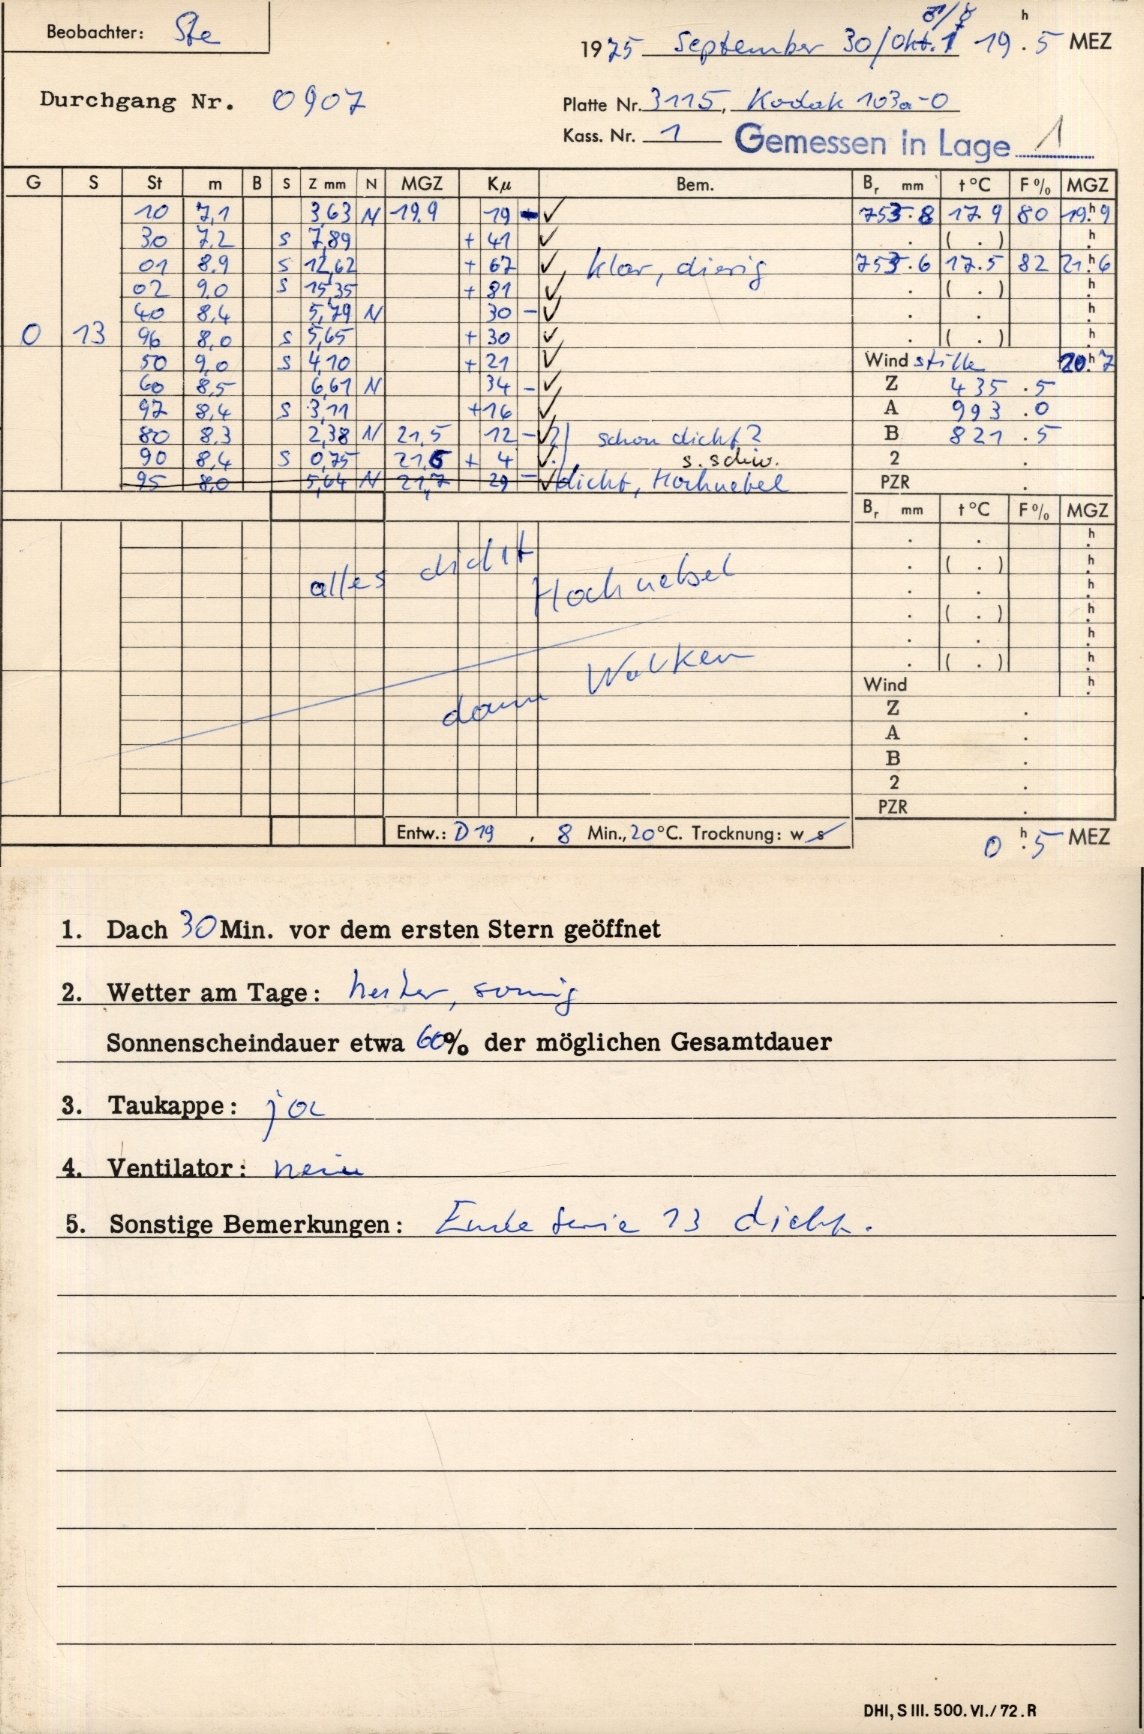 ♂/☿
Beobachter: Ste
1975 September 30/Okt. 1 19 h . 5 MEZ
Durchgang Nr. 0907
Platte Nr. 3115, Kodak 103a-O
Kass. Nr. 1 Gemessen in Lage 1
G S St m B S Z mm N MGZ Kμ Bem. Br mm t °C F% MGZ
10 7,1 3,63 N 19,9 19 - ✓ 753.8 17.9 80 19h.9
30 7,2 S 7,89 + 41 ✓ . ( . ) h.
01 8,9 S 12,62 + 67 ✓ klar, diesig 753.6 17.5 82 21h.6
02 9,0 S 15,35 + 81 ✓ . ( . ) h.
40 8,4 5,79 N 30 - ✓ . . h.
0 13 96 8,0 S 5,65 + 30 ✓ . ( . ) h.
50 9,0 S 4,10 + 21 ✓ Wind stille 20h.7
60 8,5 6,61 N 34 - ✓ Z 435.5
97 8,4 S 3,11 + 16 ✓ A 993.0
80 8,3 2,38 N 21,5 12 - ✓ ?) schon dicht? B 821.5
90 8,4 S 0,75 21,6 + 4 ✓ s. schw. 2 .
95 8,0 5,64 N 21,7 29 - ✓ dicht, Hochnebel PZR .
Br mm t °C F% MGZ
. . h.
alles dicht . ( . ) h.
Hochnebel . . h.
. ( . ) h.
. . h.
dann Wolken . ( . ) h.
Wind h.
Z .
A .
B .
2 .
PZR .
Entw.: D 19 , 8 Min., 20 °C. Trocknung: w s
0 h . 5 MEZ
1. Dach 30 Min. vor dem ersten Stern geöffnet
2. Wetter am Tage: heiter, sonnig
Sonnenscheindauer etwa 60% der möglichen Gesamtdauer
3. Taukappe: ja
4. Ventilator: nein
5. Sonstige Bemerkungen: Ende Serie 13 dicht.
DHI, S III. 500. VI./72. R